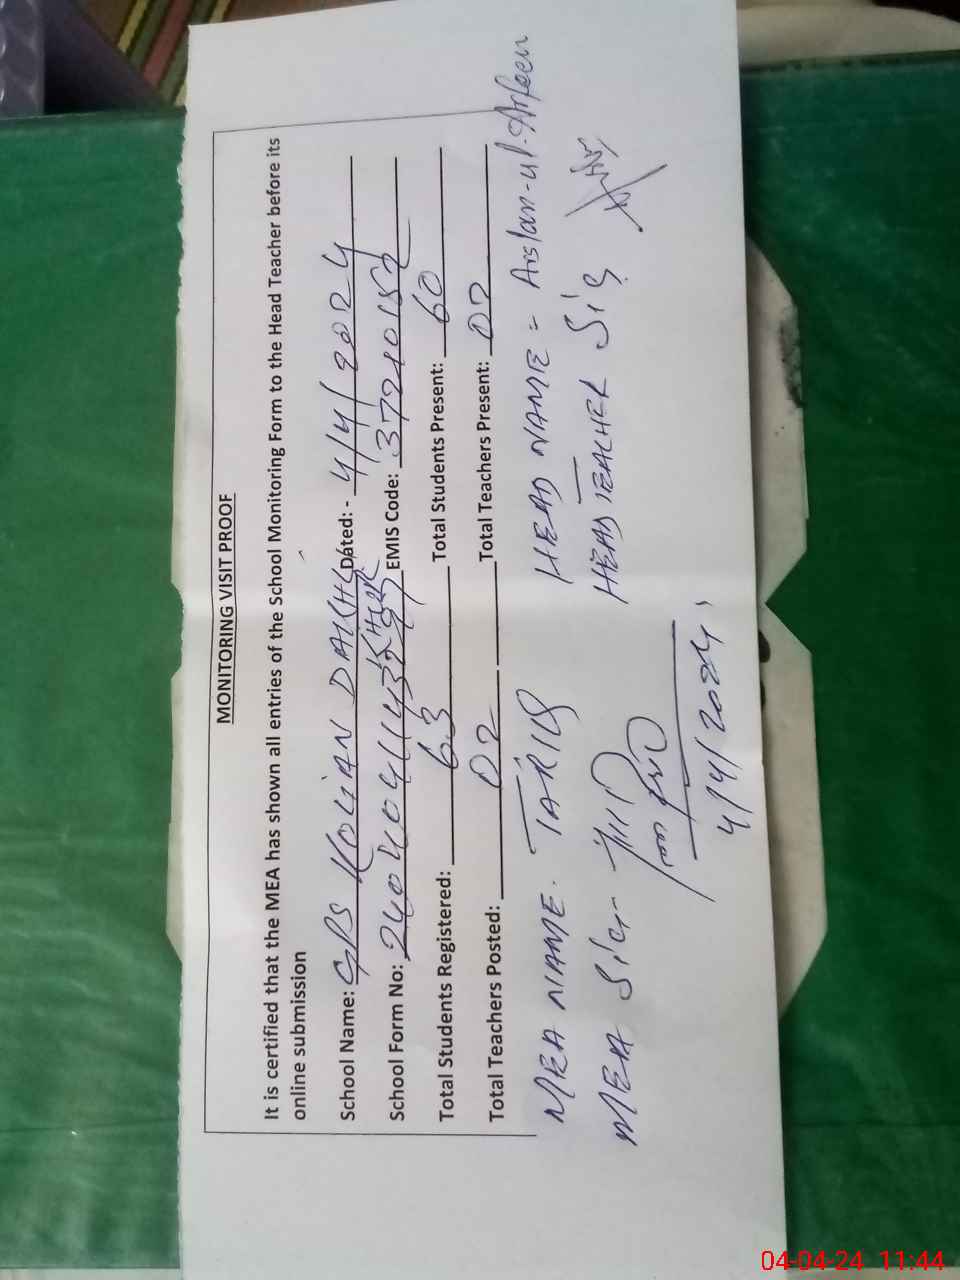 MONITORING VISIT PROOF
It is certified that the MEA has shown all entries of the School Monitoring Form to the Head Teacher before its
online submission
School Name: GPS KOLIAN DAKHLI Dated: - 4/4/2024
School Form No: EMIS Code: 37210152
Total Students Registered: 63 Total Students Present: 60
Total Teachers Posted: 02 Total Teachers Present: 02
MEA NAME. TARIQ HEAD NAME = Arslan-ul-Arfeen
MEA Sign HEAD TEACHER Sig
4/4/2024
04-04-24 11:44